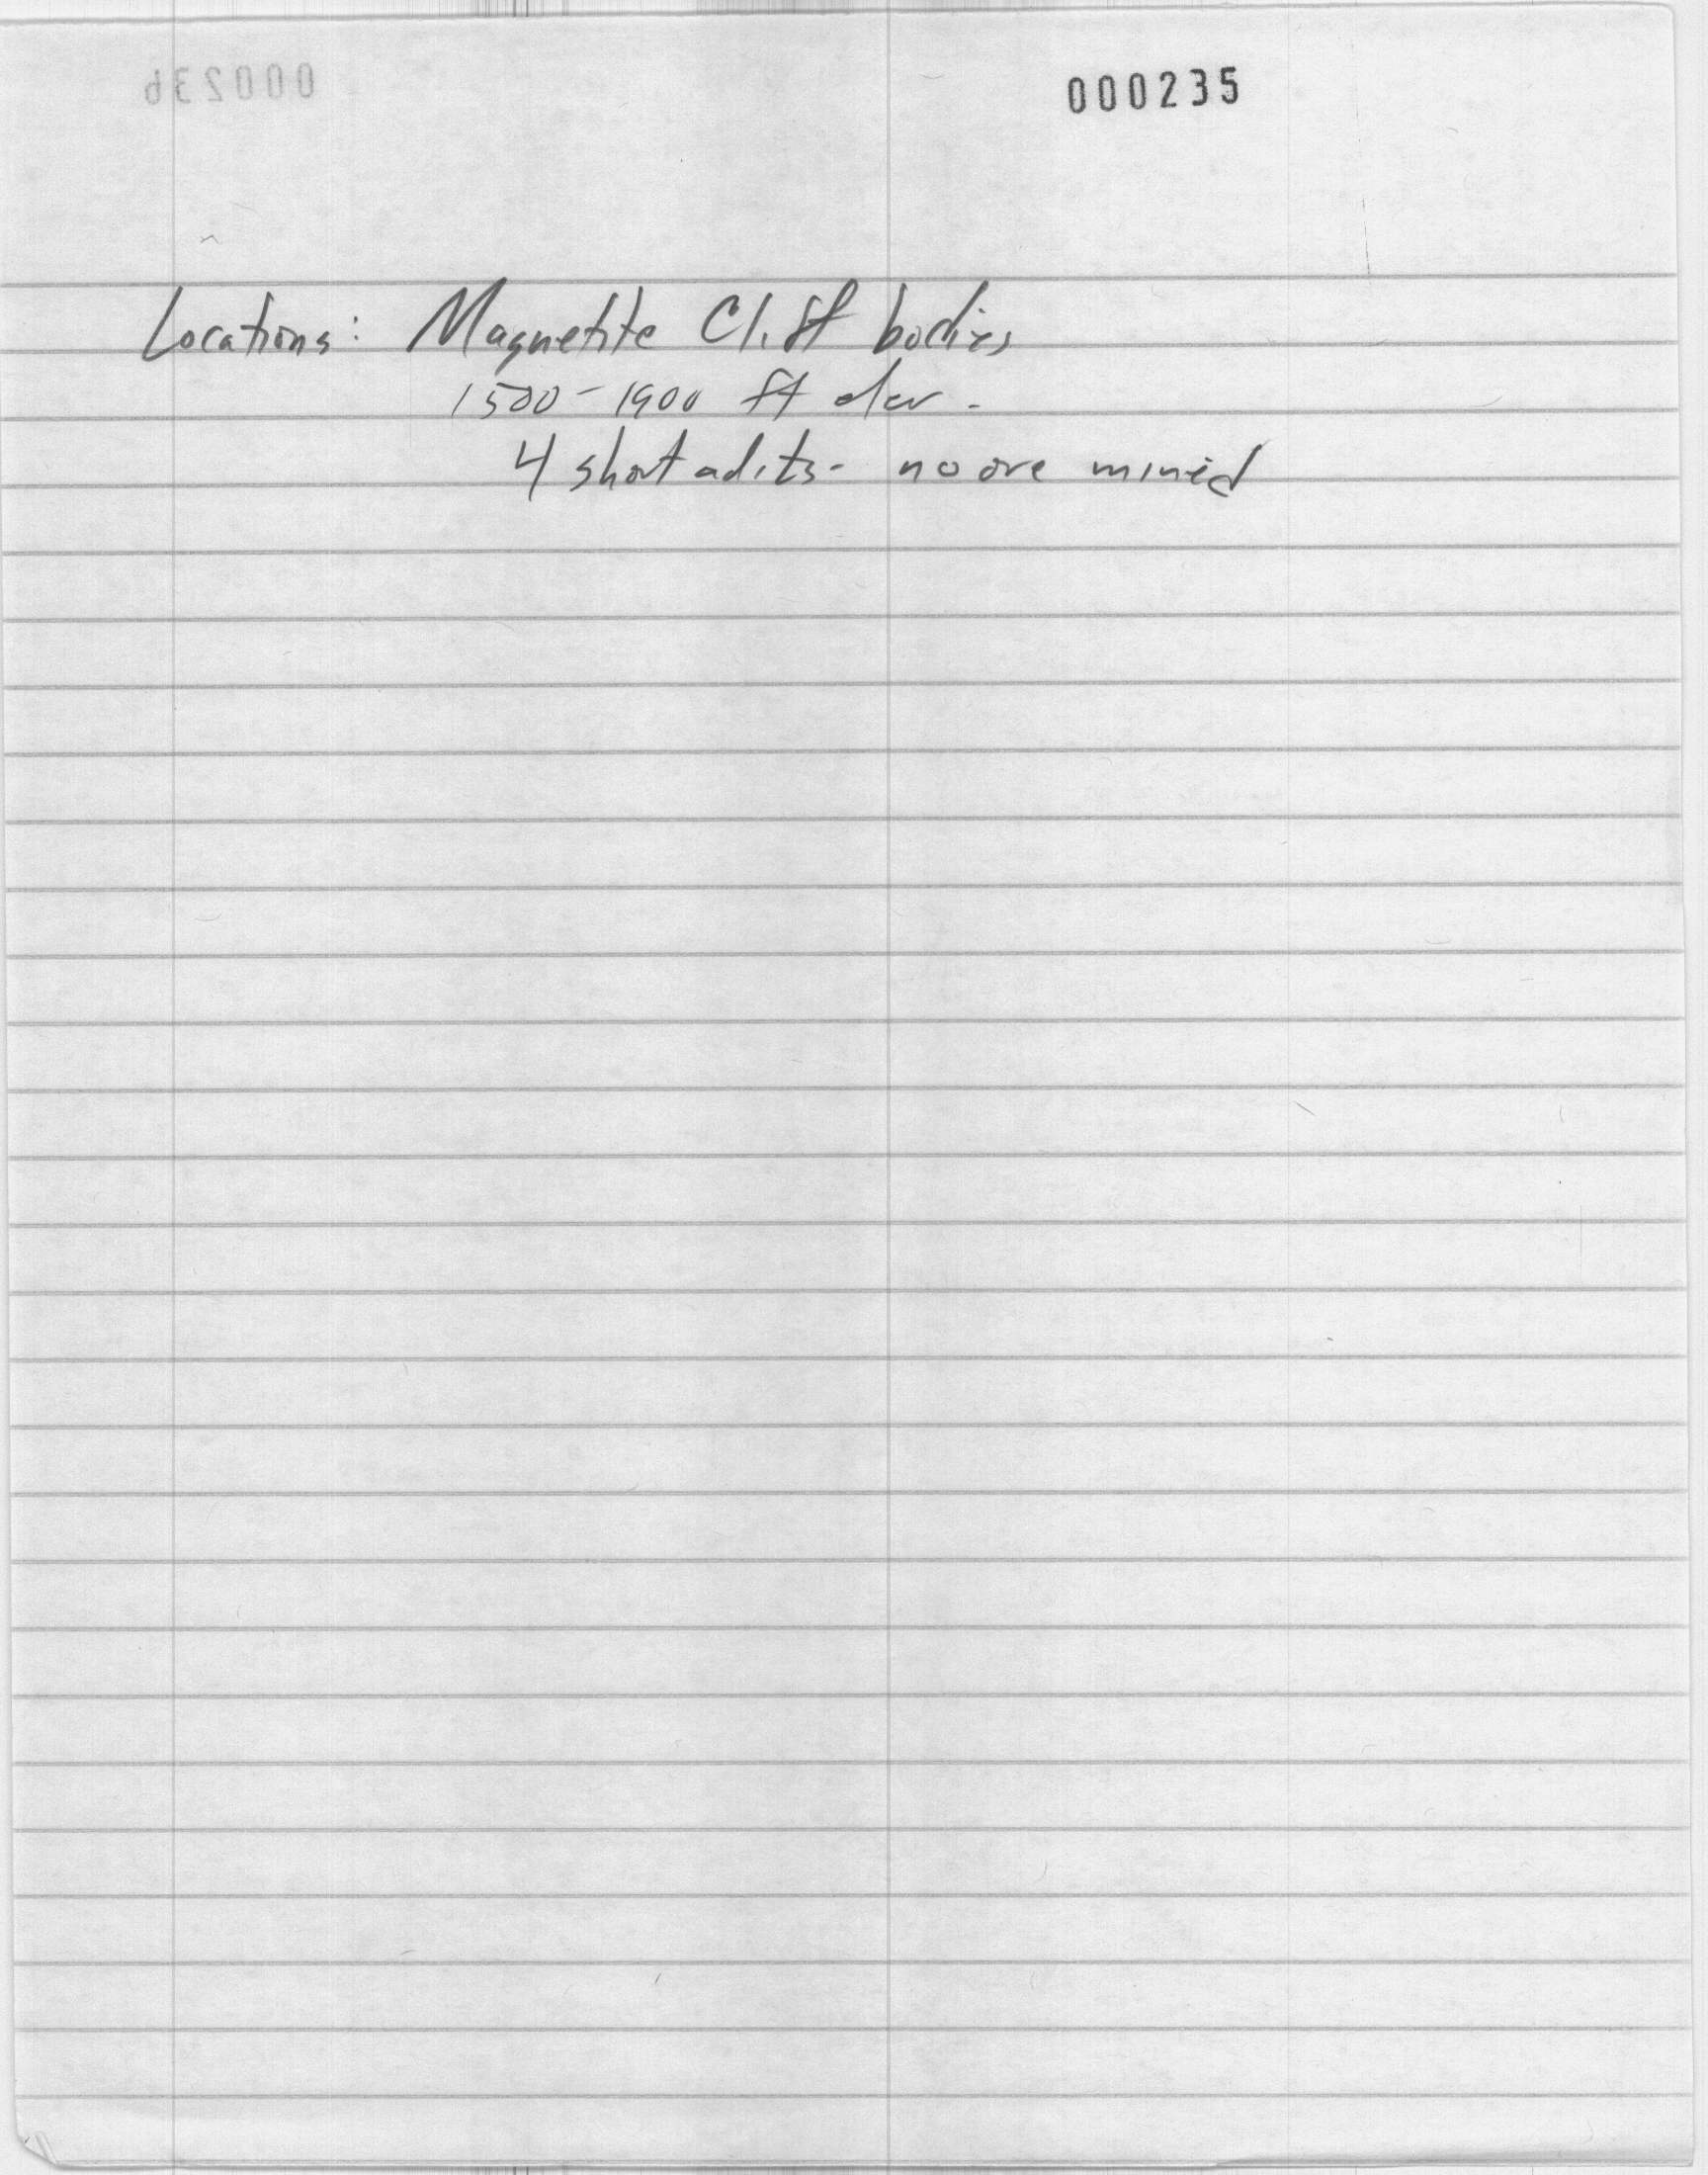 000236
000235
Locations: Magnetite Cliff bodies
1500-1900 ft elev.
4 short adits - no ore mined